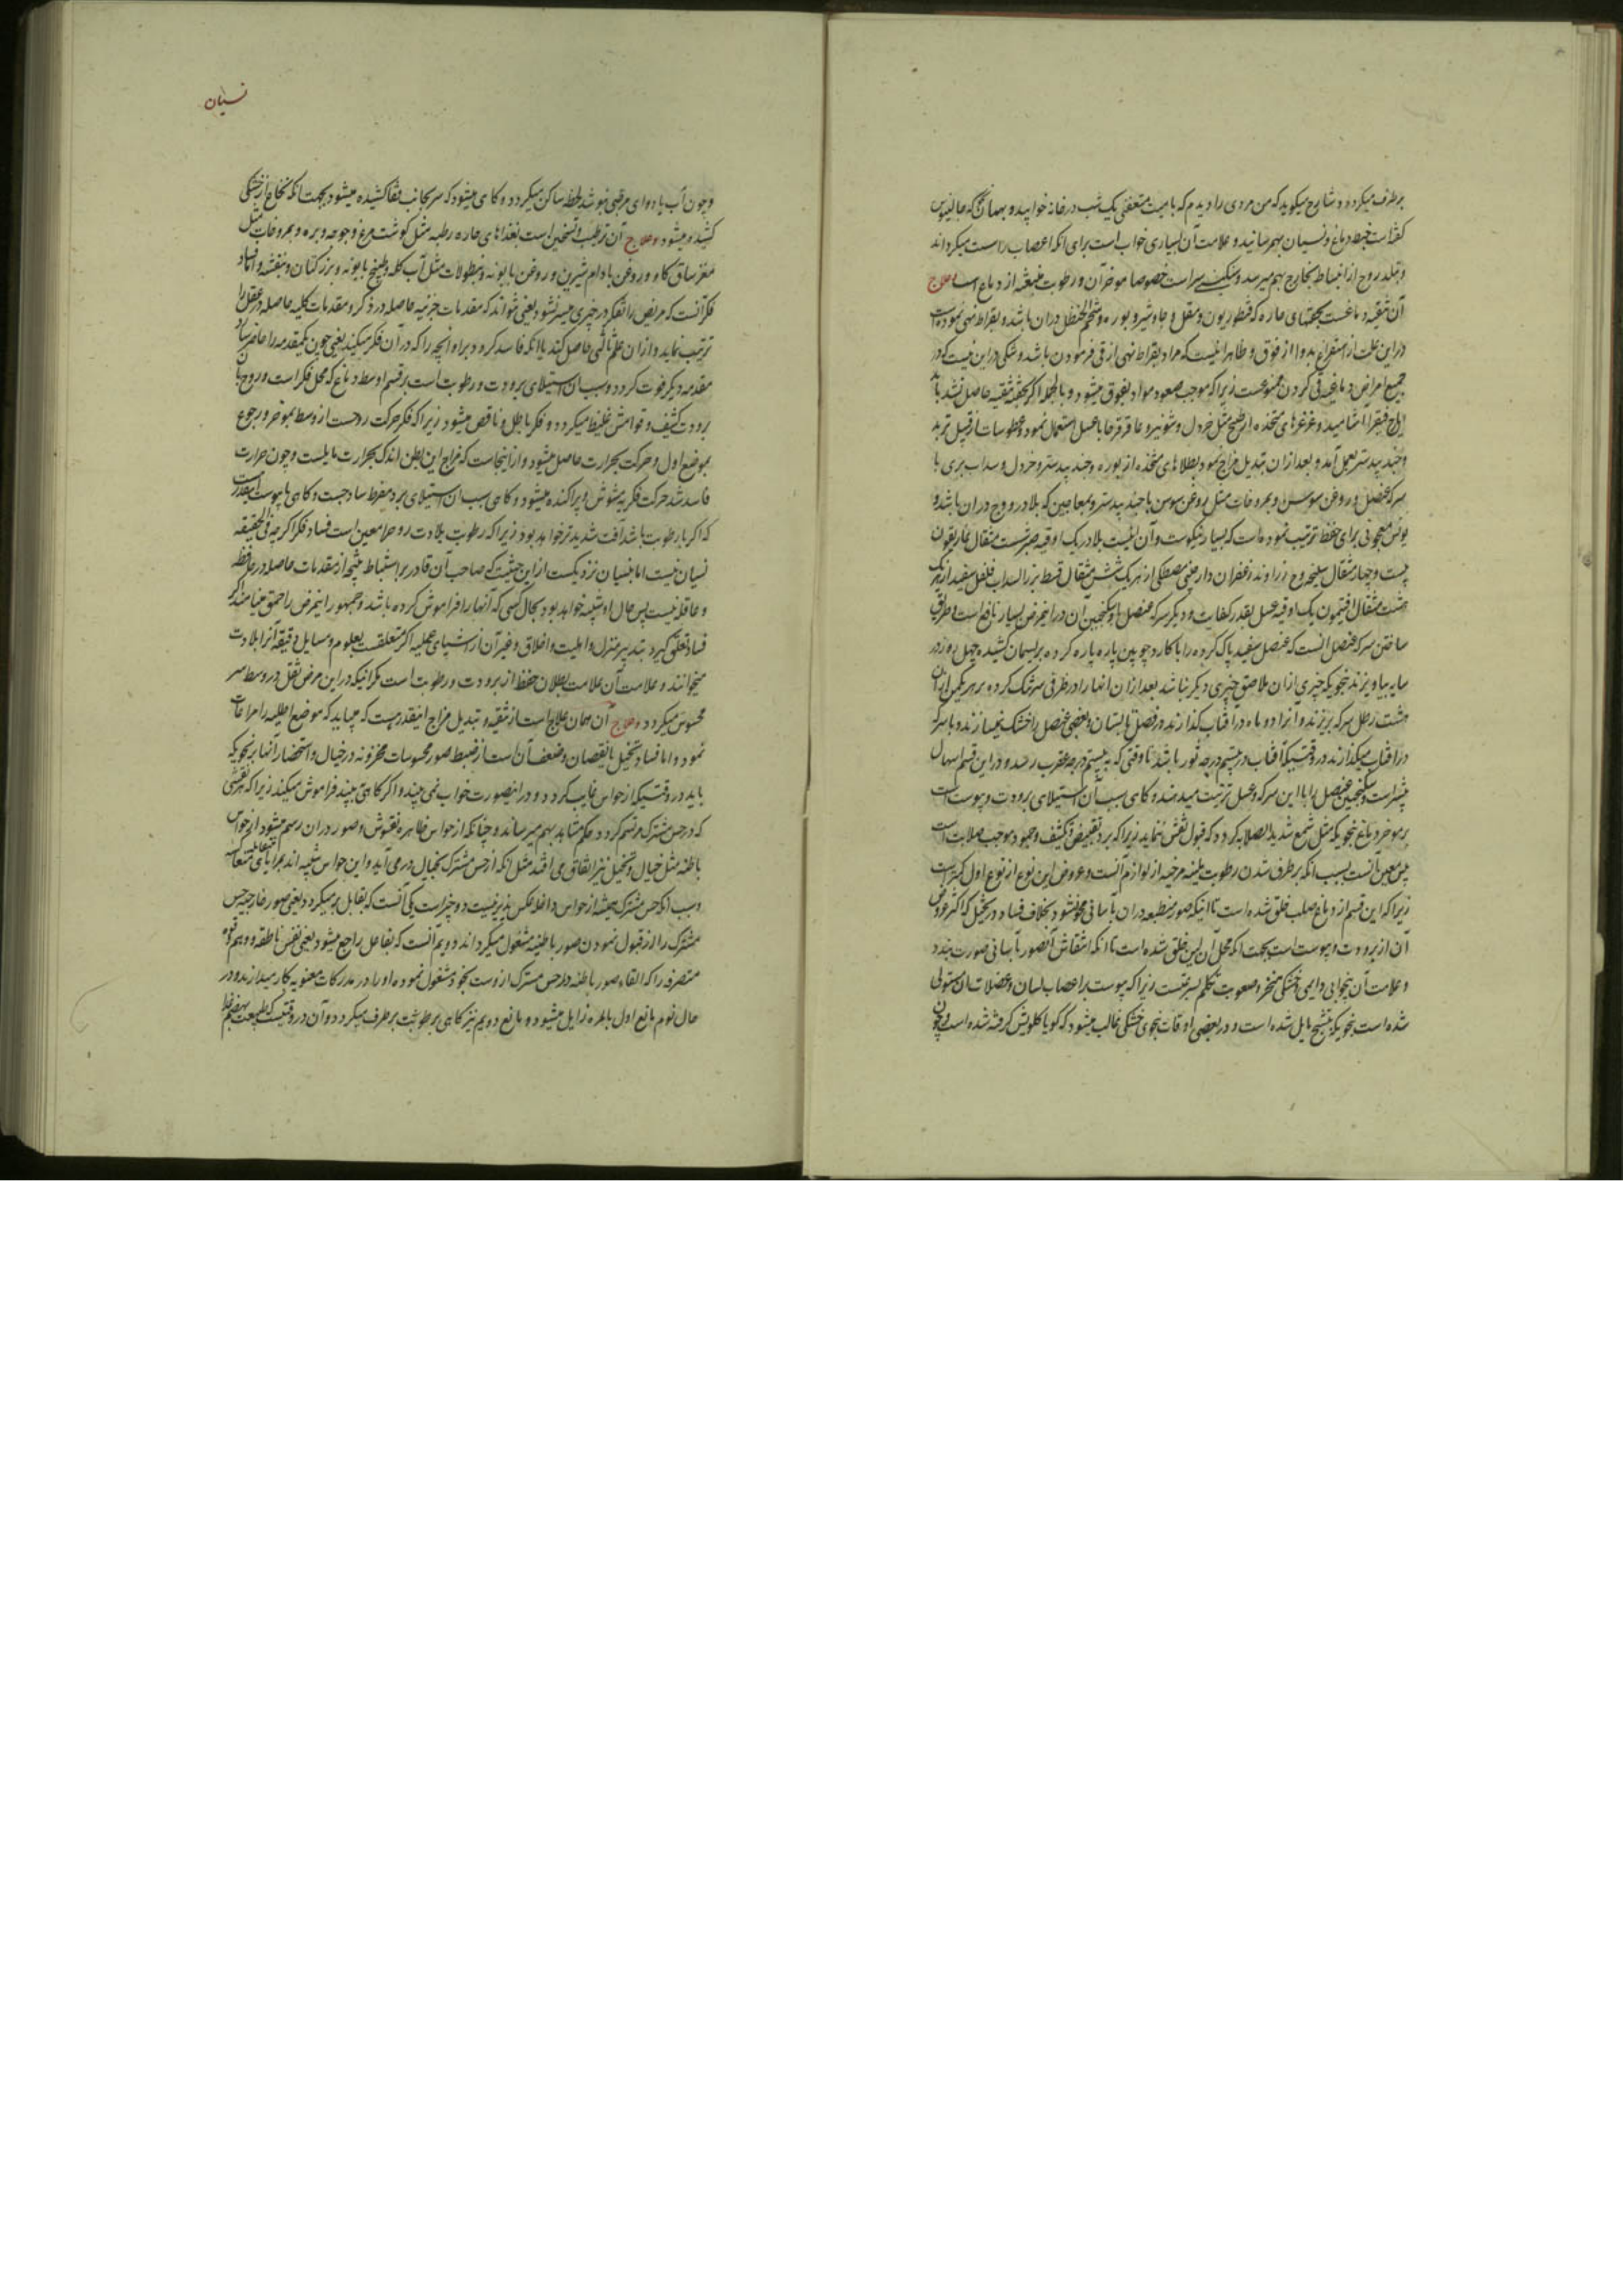 برطرف میکردد و شارح میکوید که من مردی را دیدم که با میت متعفنی یک شب در خانه خوابید و بهمان نحو که جالینوس
کفته است خبط دماغ و نسیان بهم رسانید و علامت آن بسیاری خواب است برای انکه اعصاب را سست میکرداند
و تبلد روح از انبساط بخارج بهم میرسد و سنکینی سر است خصوصا موخر آن و رطوبت منبعثه از دماغ است و علاج
آن تنقیه دماغست بحقنهای حاره که قنطوریون و مقل و جاوشیر و بوره و شحم الحنظل دران باشد و بقراط نهی نموده است
در این علت از استفراغ بدوا از فوق و ظاهرا اینست که مراد بقراط نهی از قی فرمودن باشد و شکی در این نیست که در
جمیع امراض دماغیه قی کردن ممنوعست زیرا که موجب صعود مواد بفوق میشود و بالجمله اکر بحقنه تنقیه حاصل نشد باید
ایارج فیقرا اشامید و غرغرهای متخذه از طبیخ مثل خردل و شونیز و عاقرقرحا با عسل استعمال نمود و عطوسات از قبیل تربد
و جند بیدستر بعمل آمد و بعد ازان تبدیل مزاج نمود بطلاهای متخذه از بوره و جند بیدستر و خردل و سداب بری با
سرکه عنصل و روغن سوسن و بمروخات مثل روغن سوسن با جند بیدستر و بمعاجین که بلادر و وج دران باشد و
یونس معجونی برای حفظ ترتیب نموده است که بسیار نیکوست و آن اینست بلادر یک اوقیه صبر شست مثقال غاریقون
بیست و چهار مثقال سلیخه وج زراوند زعفران دارچینی مصطکی از هر یک شش مثقال قسط بزر السداب فلفل سفید از هر یک
هشت مثقال افتیمون یک اوقیه عسل بقدر کفایت و دیکر سرکه عنصل و سکنجبین آن در اینمرض بسیار نافع است و طریق
ساختن سرکه عنصل انست که عنصل سفید پاک کرده را با کارد چوبین پاره پاره کرده بریسمان کشیده چهل روز در
سایه بیاویزند بنحویکه چیزی ازان ملاصق چیزی دیکر نباشد بعد ازان انها را در ظرفی سر تنک کرده بر هر یکمن از آن
هشت رطل سرکه بریزند و آنرا دو ماه در آفتاب کذارند در فصل تابستان و بعضی عنصل را خشک نمیسازند و با سرکه
در آفتاب میکذارند در وقتیکه آفتاب در بیستم درجه ثور باشد تا وقتی که به بیستم درجه عقرب رسد و در این قسم اسهال
بیشتر است و سکنجبین عنصل را با این سرکه و عسل ترتیب میدهند و کاهی سبب آن استیلای برودت و یبوست است
بر موخر دماغ بنحویکه مثل شمع شدید الصلابه کردد که قبول نقش ننماید زیرا که برد مقتضی تکثیف و جمود موجب صلابت است
یبس معین انست بسبب انکه برطرف شدن رطوبت ملینه مرخیه از لوازم آنست و عروض این نوع از نوع اول کمتر است
زیرا که این قسم از دماغ صلب خلق شده است تا اینکه صور منطبعه دران بآسانی محو نشود بخلاف فساد در تخیل که اکثر عروض
آن از برودت و یبوست است بجهت انکه محل آن لین خلق شده است تا انکه انتقاش آنصور بآسانی صورت بندد
و علامت آن بیخوابی دایمی و خشکی منخر و صعوبت تکلم بسرعتست زیرا که یبوست بر اعصاب لسان و عضلات ان مستولی
شده است بنحویکه بتشنج مایل شده است و در بعضی اوقات بنحوی خشکی غالب میشود که کویا کلویش کرفته شده است و چون
نسیان
و چون آب یا دوای مرطبی بنوشد لحظه ساکن میکردد و کاهی میشود که سر بجانب قفا کشیده میشود بجهت انکه نخاع از خشکی
کشیده میشود و علاج آن ترطیب و تسخین است بغذاهای حاره رطبه مثل کوشت مرغ و جوجه و بره و بمروخات مثل
مغز ساق کاو و روغن بادام شیرین و روغن بابونه و بنطولات مثل آب کله و طبیخ بابونه و بزر کتان و بنفشه و اما فساد
فکر آنست که مریض را تفکر در چیزی میسر نشود یعنی نتواند که مقدمات جزئیه حاصله در ذکر و مقدمات کلیه حاصله در عقل را
ترتیب نماید و ازان علم ثالثی حاصل کند یا انکه فاسد کردد براو انچه را که در آن فکر میکند یعنی چون یکمقدمه را حاضر سازد
مقدمه دیکر فوت کردد و سبب ان استیلای برودت و رطوبت است بر قسم اوسط دماغ که محل فکر است و روح بان
برودت کثیف و قوامش غلیظ میکردد و فکر باطل و ناقص میشود زیرا که فکر حرکت روحست از وسط بموخر و رجوع
بموضع اول و حرکت بحرارت حاصل میشود و از اینجاست که مزاج این بطن اندک بحرارت مایلست و چون حرارت
فاسد شد حرکت فکریه مشوش و پراکنده میشود و کاهی سبب ان استیلای برد مفرط ساذجست و کاهی با یبوست اینقدر
که اکر با رطوبت باشد آفت شدیدتر خواهد بود زیرا که رطوبت بلادت روح را معین است فساد فکر اکرچه فی الحقیقه
نسیان نیست اما بنسیان نزدیکست از این حیثیت که صاحب آن قادر بر استنباط نتیجه از مقدمات حاصله در حافظه
و عاقله نیست پس حال او شبیه خواهد بود بحال کسی که آنها را فراموش کرده باشد و جمهور اینمرض را حمق مینامند اکر
فساد تعلق کیرد بتدبیر منزل و اهلیت و اخلاق و غیر آن از اشیای عملیه اکر متعلقست بعلوم و مسایل دقیقه آنرا بلادت
میخوانند و علامت آن علامت بطلان حفظ از برودت و رطوبت است مکر اینکه در این مرض ثقل در وسط سر
محسوس میکردد و علاج آن همان علاج است از تنقیه و تبدیل مزاج اینقدر هست که میباید که موضع اطلیه را مراعات
نمود و اما فساد تخیل یا نقصان و ضعف آن است از ضبط صور محسوسات مخزونه در خیال و استحضار آنها بر نحویکه
باید در وقتیکه از حواس غایب کردد و در اینصورت خواب نمی بیند و اکر کاهی بیند فراموش میکند زیرا که هر نقشی
که در حس مشترک مرتسم کردد حکم مشاهد بهم میرساند و چنانکه از حواس ظاهره نقوش و صور دران رسم میشود از حواس
باطنه مثل خیال و تخیل نیز اتفاق می افتد مثل انکه از حس مشترک بخیال در می آید و این حواس شبیه اند بمرایای متعاکسه متقابله
و سبب انکه حس مشترک همیشه از حواس داخله عکس پذیر نیست دو چیز است یکی آنست که بقابل بر میکردد یعنی صور خارجیه حس
مشترک را از قبول نمودن صور باطنیه مشغول میکرداند دویم آنست که بفاعل راجع میشود یعنی نفس ناطقه و وهم قوه
متصرفه را که القاء صور باطنه در حس مشترک از وست بخود مشغول نموده او را در مدرکات معنویه کار میدارند و در
حال نوم مانع اول بالمره زایل میشود و مانع دویم نیز کاهی برطوبت برطرف میکردد و آن در وقتیست که طبیعت بهضم غذا